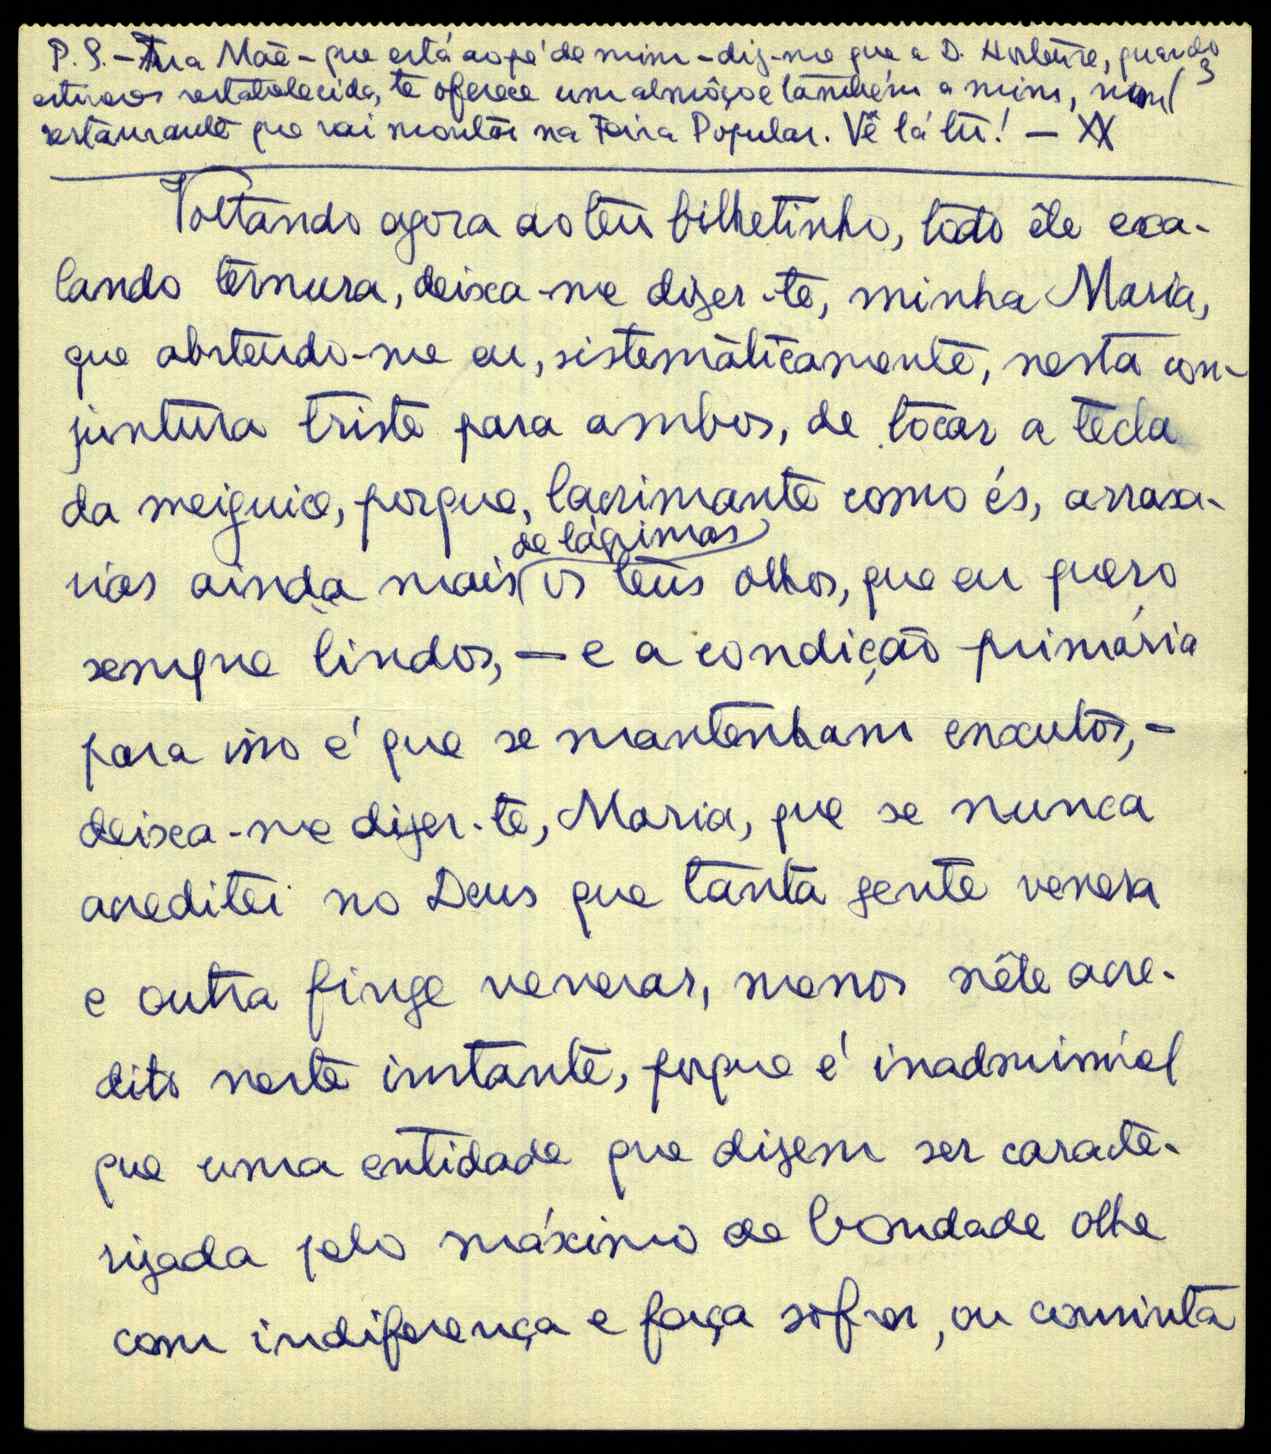 P. S. – Tua Mãe – que está ao pé de mim – diz-me que a D. Hortense, quando
3
estiveres restabelecida, te oferece um almôço e também a mim, num
restaurante que vai montar na Feira Popular. Vê lá tu! —
Voltando agora ao teu bilhetinho, todo êle exa-
lando ternura, deixa-me dizer-te, minha Maria,
que abstendo-me eu, sistemàticamente, nesta con-
juntura triste para ambos, de tocar a tecla
da meiguice, porque, lacrimante como és, arrasa-
de lágrimas
rias ainda mais os teus olhos, que eu quero
sempre lindos, — e a condição primária
para isso é que se mantenham enxutos, –
deixa-me dizer-te, Maria, que se nunca
acreditei no Deus que tanta gente venera
e outra finge venerar, menos nêle acre-
dito neste instante, porque é inadmissível
que uma entidade que dizem ser caracte-
rizada pelo máximo de bondade olhe
com indiferença e faça sofrer, ou consinta